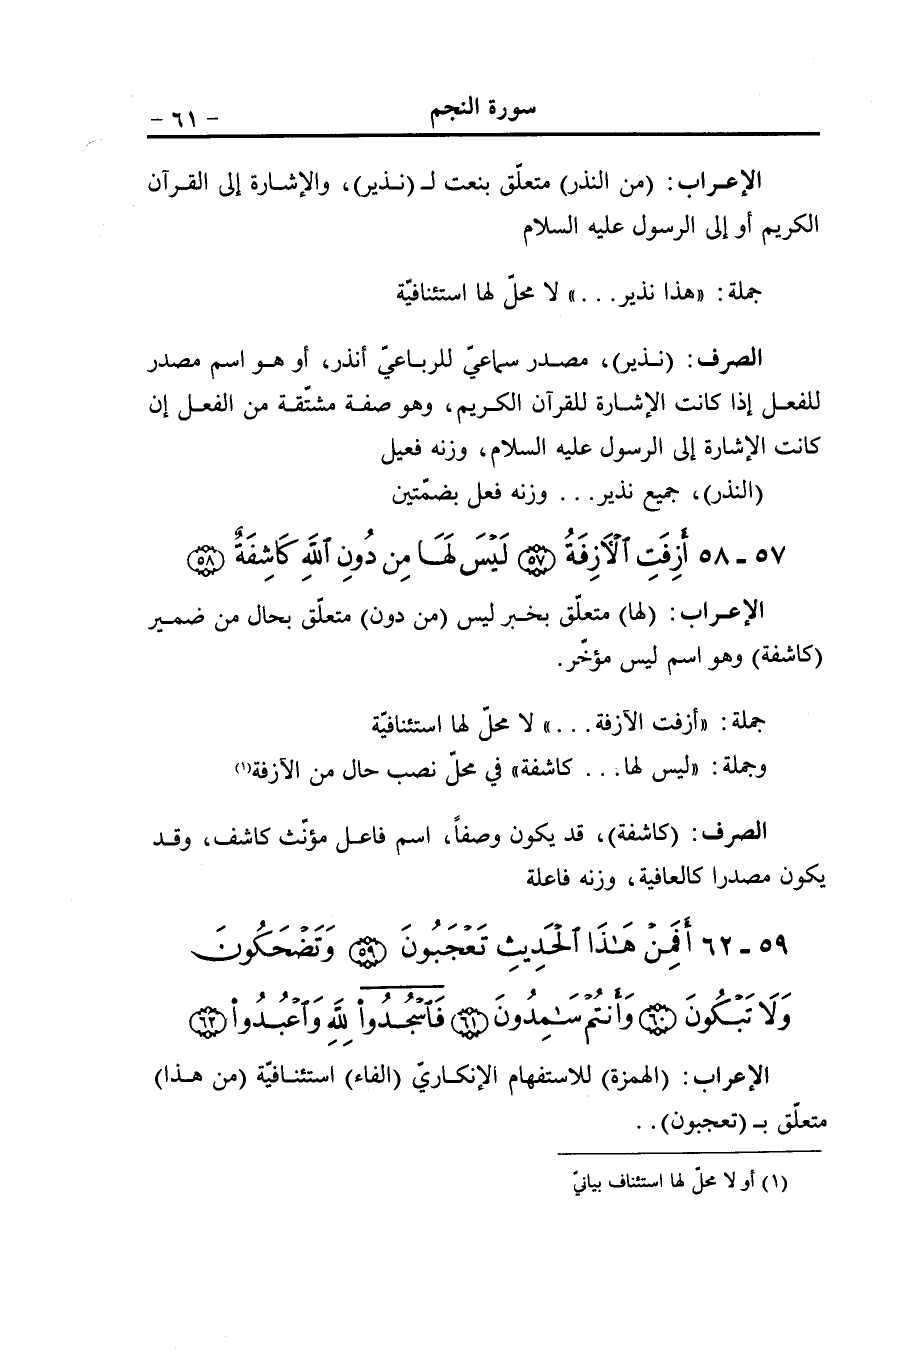 سورة النجم
- ٦١ -
الإعـراب: (من النذر) متعلّق بنعت لـ (نـذير)، والإشـارة إلى القـرآن
الكريم أو إلى الرسول عليه السلام
جملة: «هذا نذير...» لا محلّ لها استئنافيّة
الصرف: (نـذير)، مصـدر سماعيّ للربـاعيّ أنذر، أو هـو اسم مصدر
للفعـل إذا كانت الإشـارة للقرآن الكـريم، وهو صفـة مشتّقـة من الفعـل إن
كانت الإشارة إلى الرسول عليه السلام، وزنه فعيل
(النذر)، جميع نذير... وزنه فعل بضمّتين
٥٧ - ٥٨ أَزِفَتِ ٱلْآزِفَةُ ﴿٥٧﴾ لَيْسَ لَهَـا مِن دُونِ ٱللَّهِ كَاشِفَةٌ ﴿٥٨﴾
الإعـراب: (لها) متعلّق بخـبر ليس (من دون) متعلّق بحال من ضمـير
(كاشفة) وهو اسم ليس مؤخّر.
جملة: «أزفت الآزفة...» لا محلّ لها استئنافيّة
وجملة: «ليس لها... كاشفة» في محلّ نصب حال من الآزفة(١)
الصرف: (كاشفة)، قد يكون وصفاً، اسم فاعـل مؤنّث كاشف، وقـد
يكون مصدرا كالعافية، وزنه فاعلة
٥٩ - ٦٢ أَفَمِنْ هَـٰذَا ٱلْحَدِيثِ تَعْجَبُونَ ﴿٥٩﴾ وَتَضْحَكُونَ
وَلَا تَبْكُونَ ﴿٦٠﴾ وَأَنتُمْ سَـٰمِدُونَ ﴿٦١﴾ فَٱسْجُدُوا۟ لِلَّهِ وَٱعْبُدُوا۟ ﴿٦٢﴾
الإعراب: (الهمزة) للاستفهام الإنكـاريّ (الفاء) استئنـافيّة (من هـذا)
متعلّق بـ (تعجبون)..
(١) أو لا محلّ لها استئناف بيانيّ